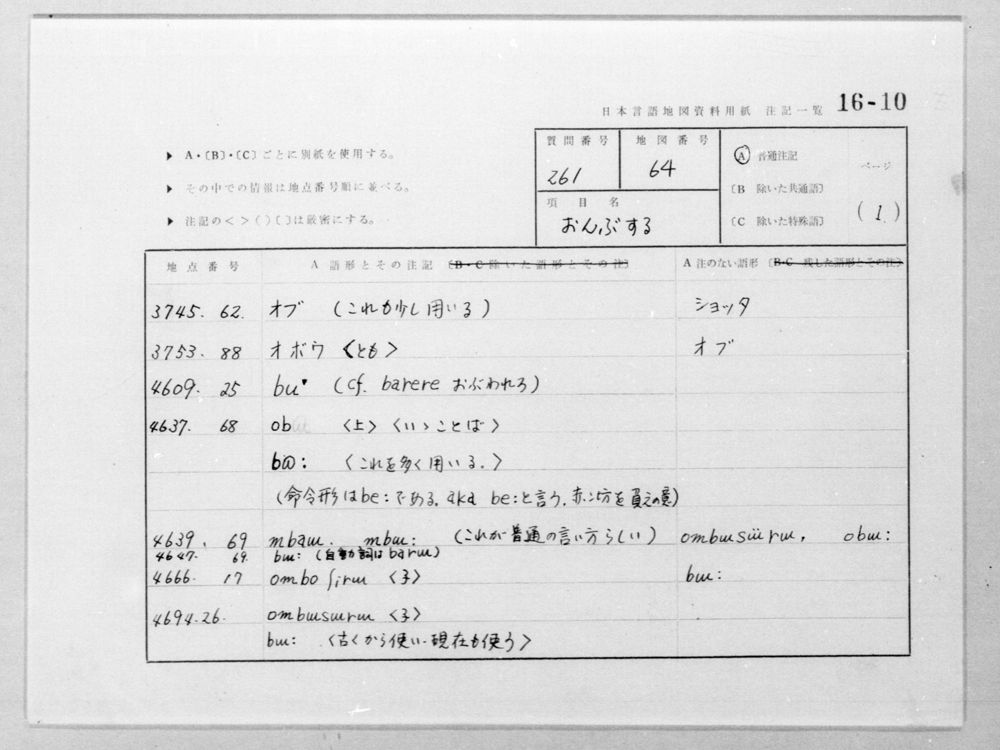 日本言語地図資料用紙 注記一覧 16-10
▶ A・〔B〕・〔C〕ごとに別紙を使用する。
▶ その中での情報は地点番号順に並べる。
▶ 注記の＜＞（）〔〕は厳密にする。
質問番号 261
地図番号 64
項目名 おんぶする
Ⓐ 普通注記
〔B 除いた共通語〕
〔C 除いた特殊語〕
ページ (1)
地点番号 A 語形とその注記 〔B・C 除いた語形とその注〕 A 注のない語形 〔B・C 残した語形とその注〕
3745. 62. オブ (これも少し用いる) ショッタ
3753. 88 オボウ 〈とも〉 オブ
4609. 25 bu (cf. barere おぶわれろ)
4637. 68 ob 〈上〉〈いゝことば〉
〈これを多く用いる.〉
(命令形はbe:である. aka be:と言う. 赤ン坊を負えの意)
4639. 69 mbaɯ. mbɯ: (これが普通の言い方らしい) ombɯsɯ̈rɯ, obɯ:
4647. 69. bɯ: (自動詞はbarɯ)
4666. 17 ombo ʃirɯ 〈子〉 bɯ:
4694.26. ombɯsɯrɯ 〈子〉
bɯ: 〈古くから使い.現在も使う〉